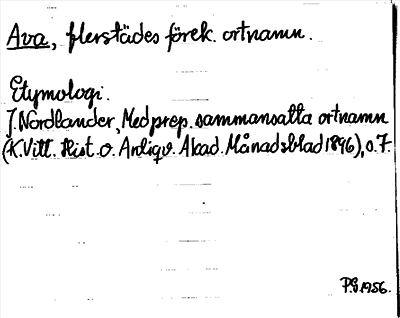 Ava, flerstädes förek. ortnamn.
Etymologi.
J. Nordlander, Med prep. sammansatta ortnamn
(K. Vitt. Hist. o. Antiqv. Akad. Månadsblad 1896), s. 7.
P.G. 1956.